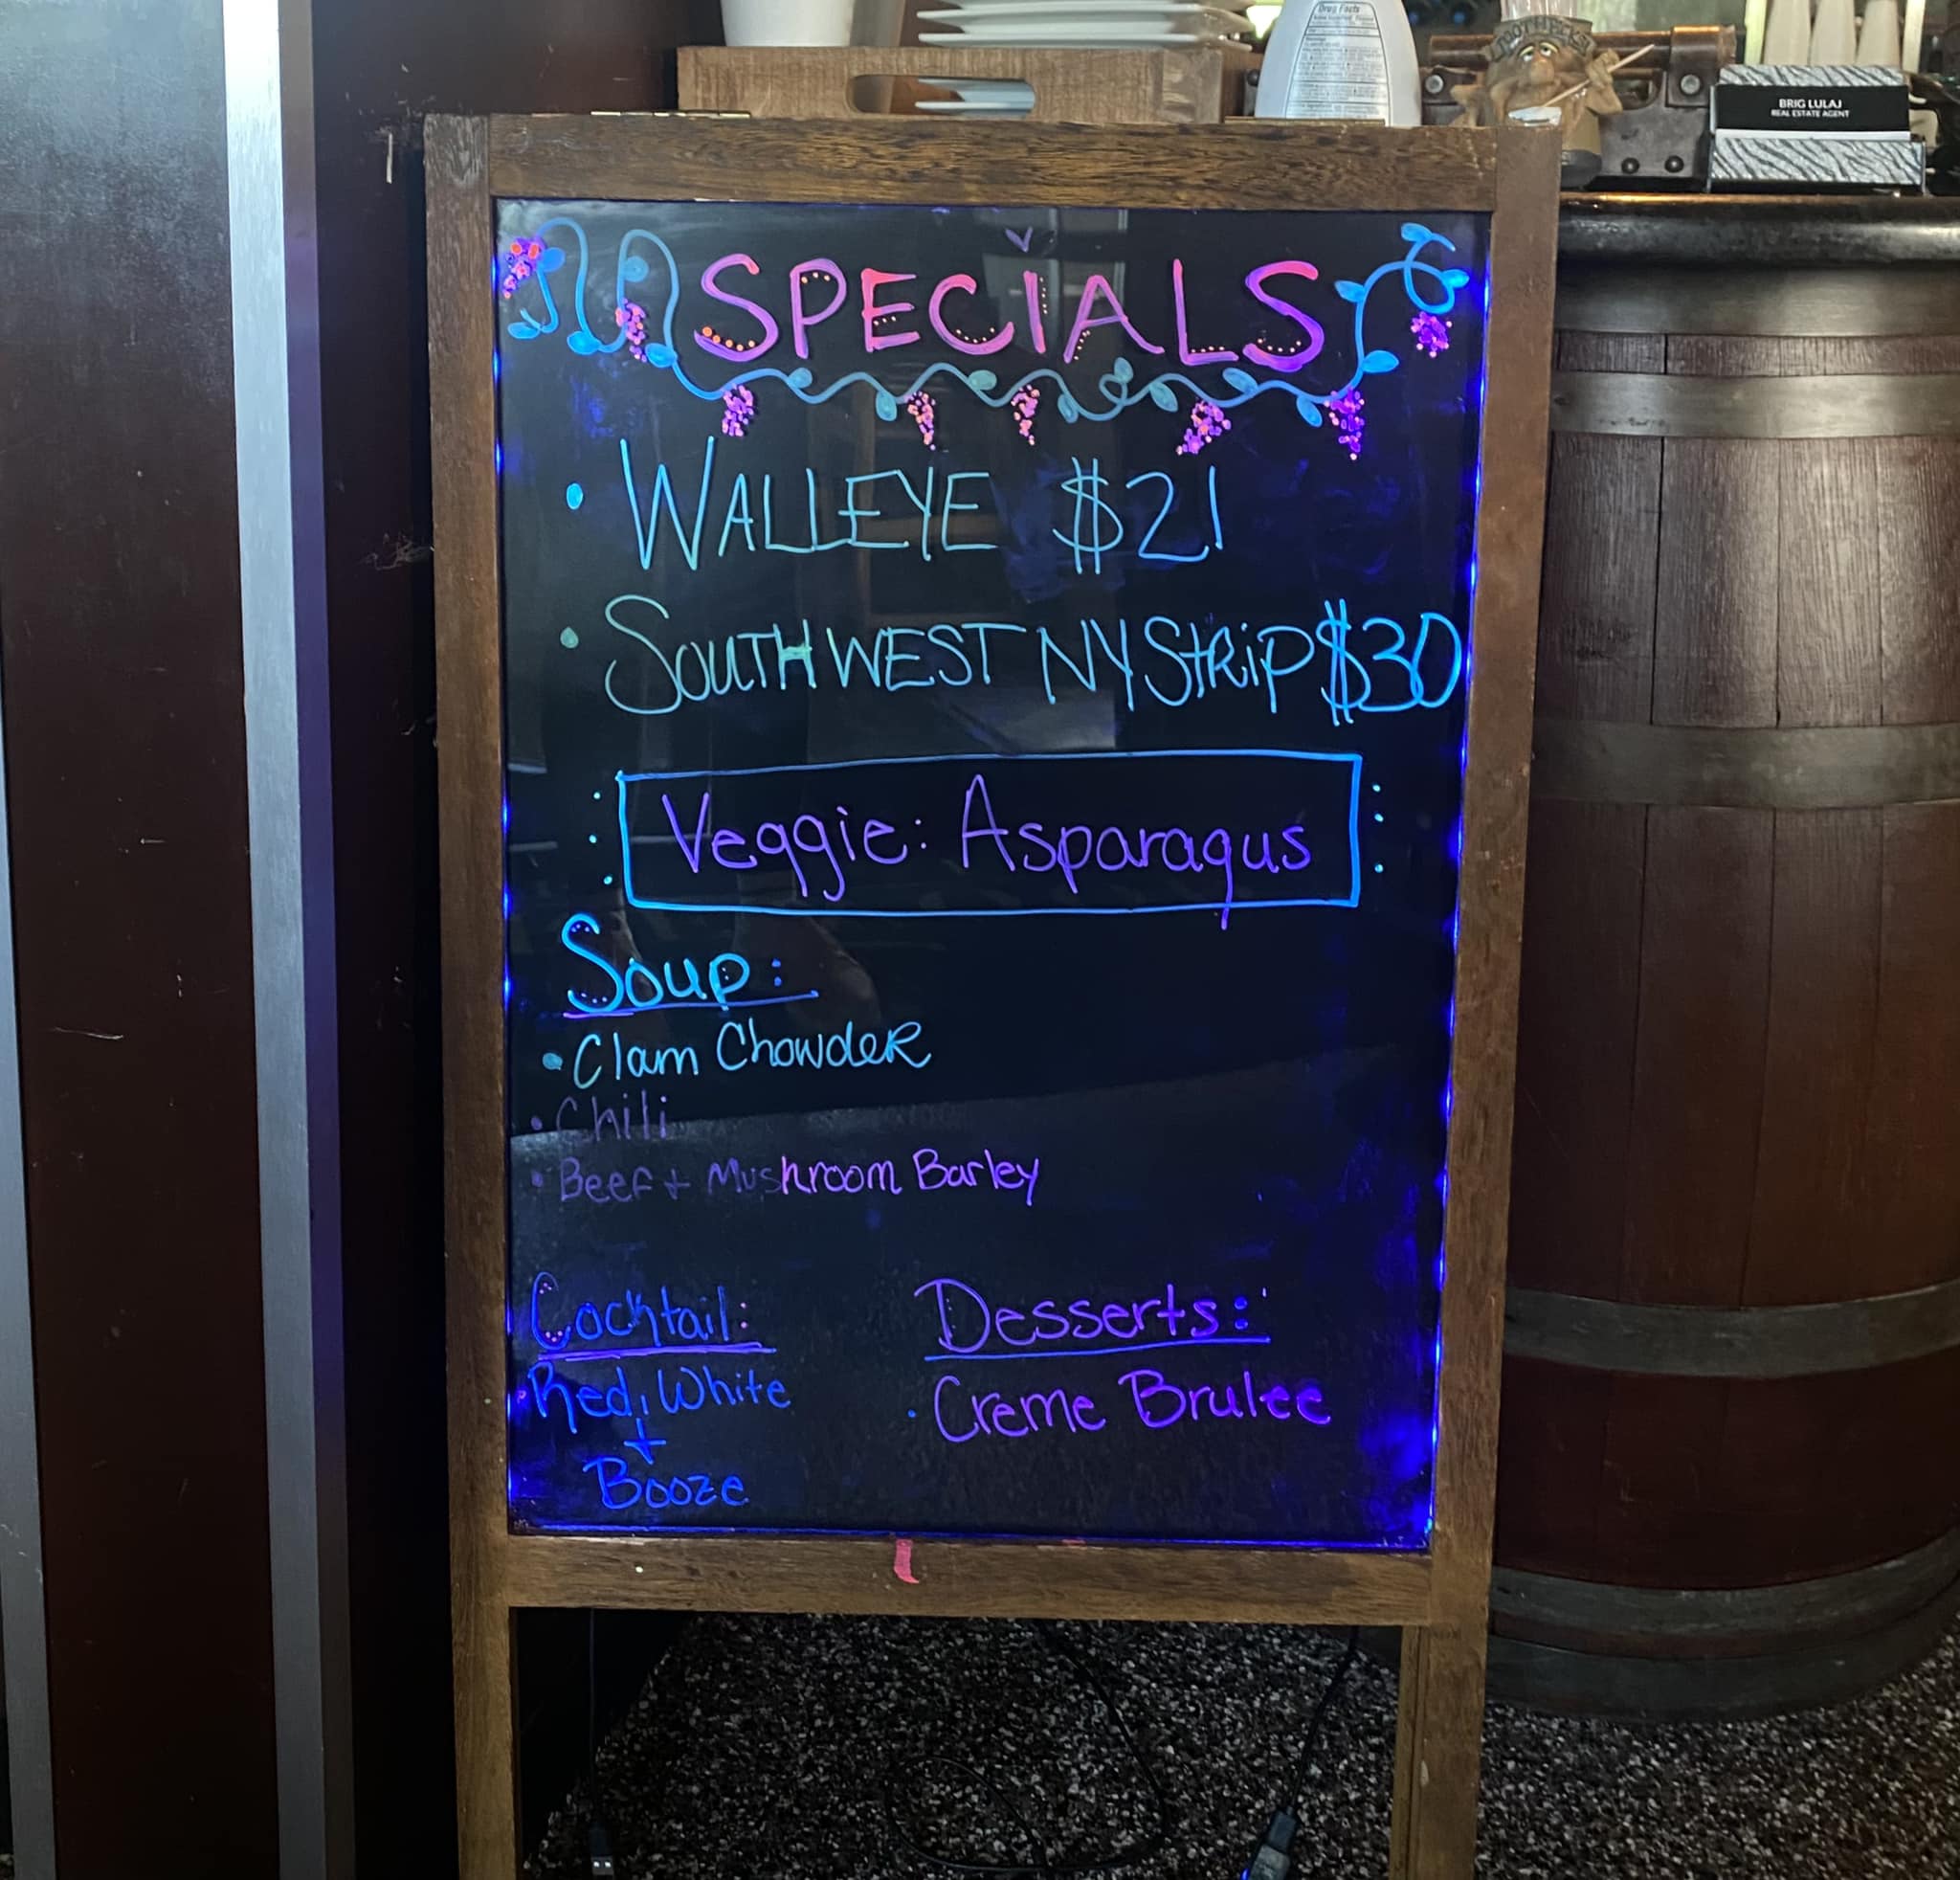 Drug Facts
BRIG LULAJ
REAL ESTATE AGENT
SPECIALS
• WALLEYE $21
• SOUTHWEST NY STRiP $30
Veggie: Asparagus
Soup:
• Clam ChowdeR
• Chili
• Beef + Mushroom Barley
Cocktail:
• Red, White
+
Booze
Desserts:
• Creme Brulee